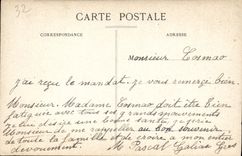 32
CARTE POSTALE
CORRESPONDANCE
ADRESSE
Monsieur Cosmao
j'ai reçu le mandat. je vous remercie bien.
Monsieur. Madame Cosmao doit être bien
fatiguée avec tous ses grands mouvements
je lui désire une bonne santé. je prie
Monsieur de me rappeller au bon souvenir
de toute la famille et de croire a mon entier
dévouement. M Pascal